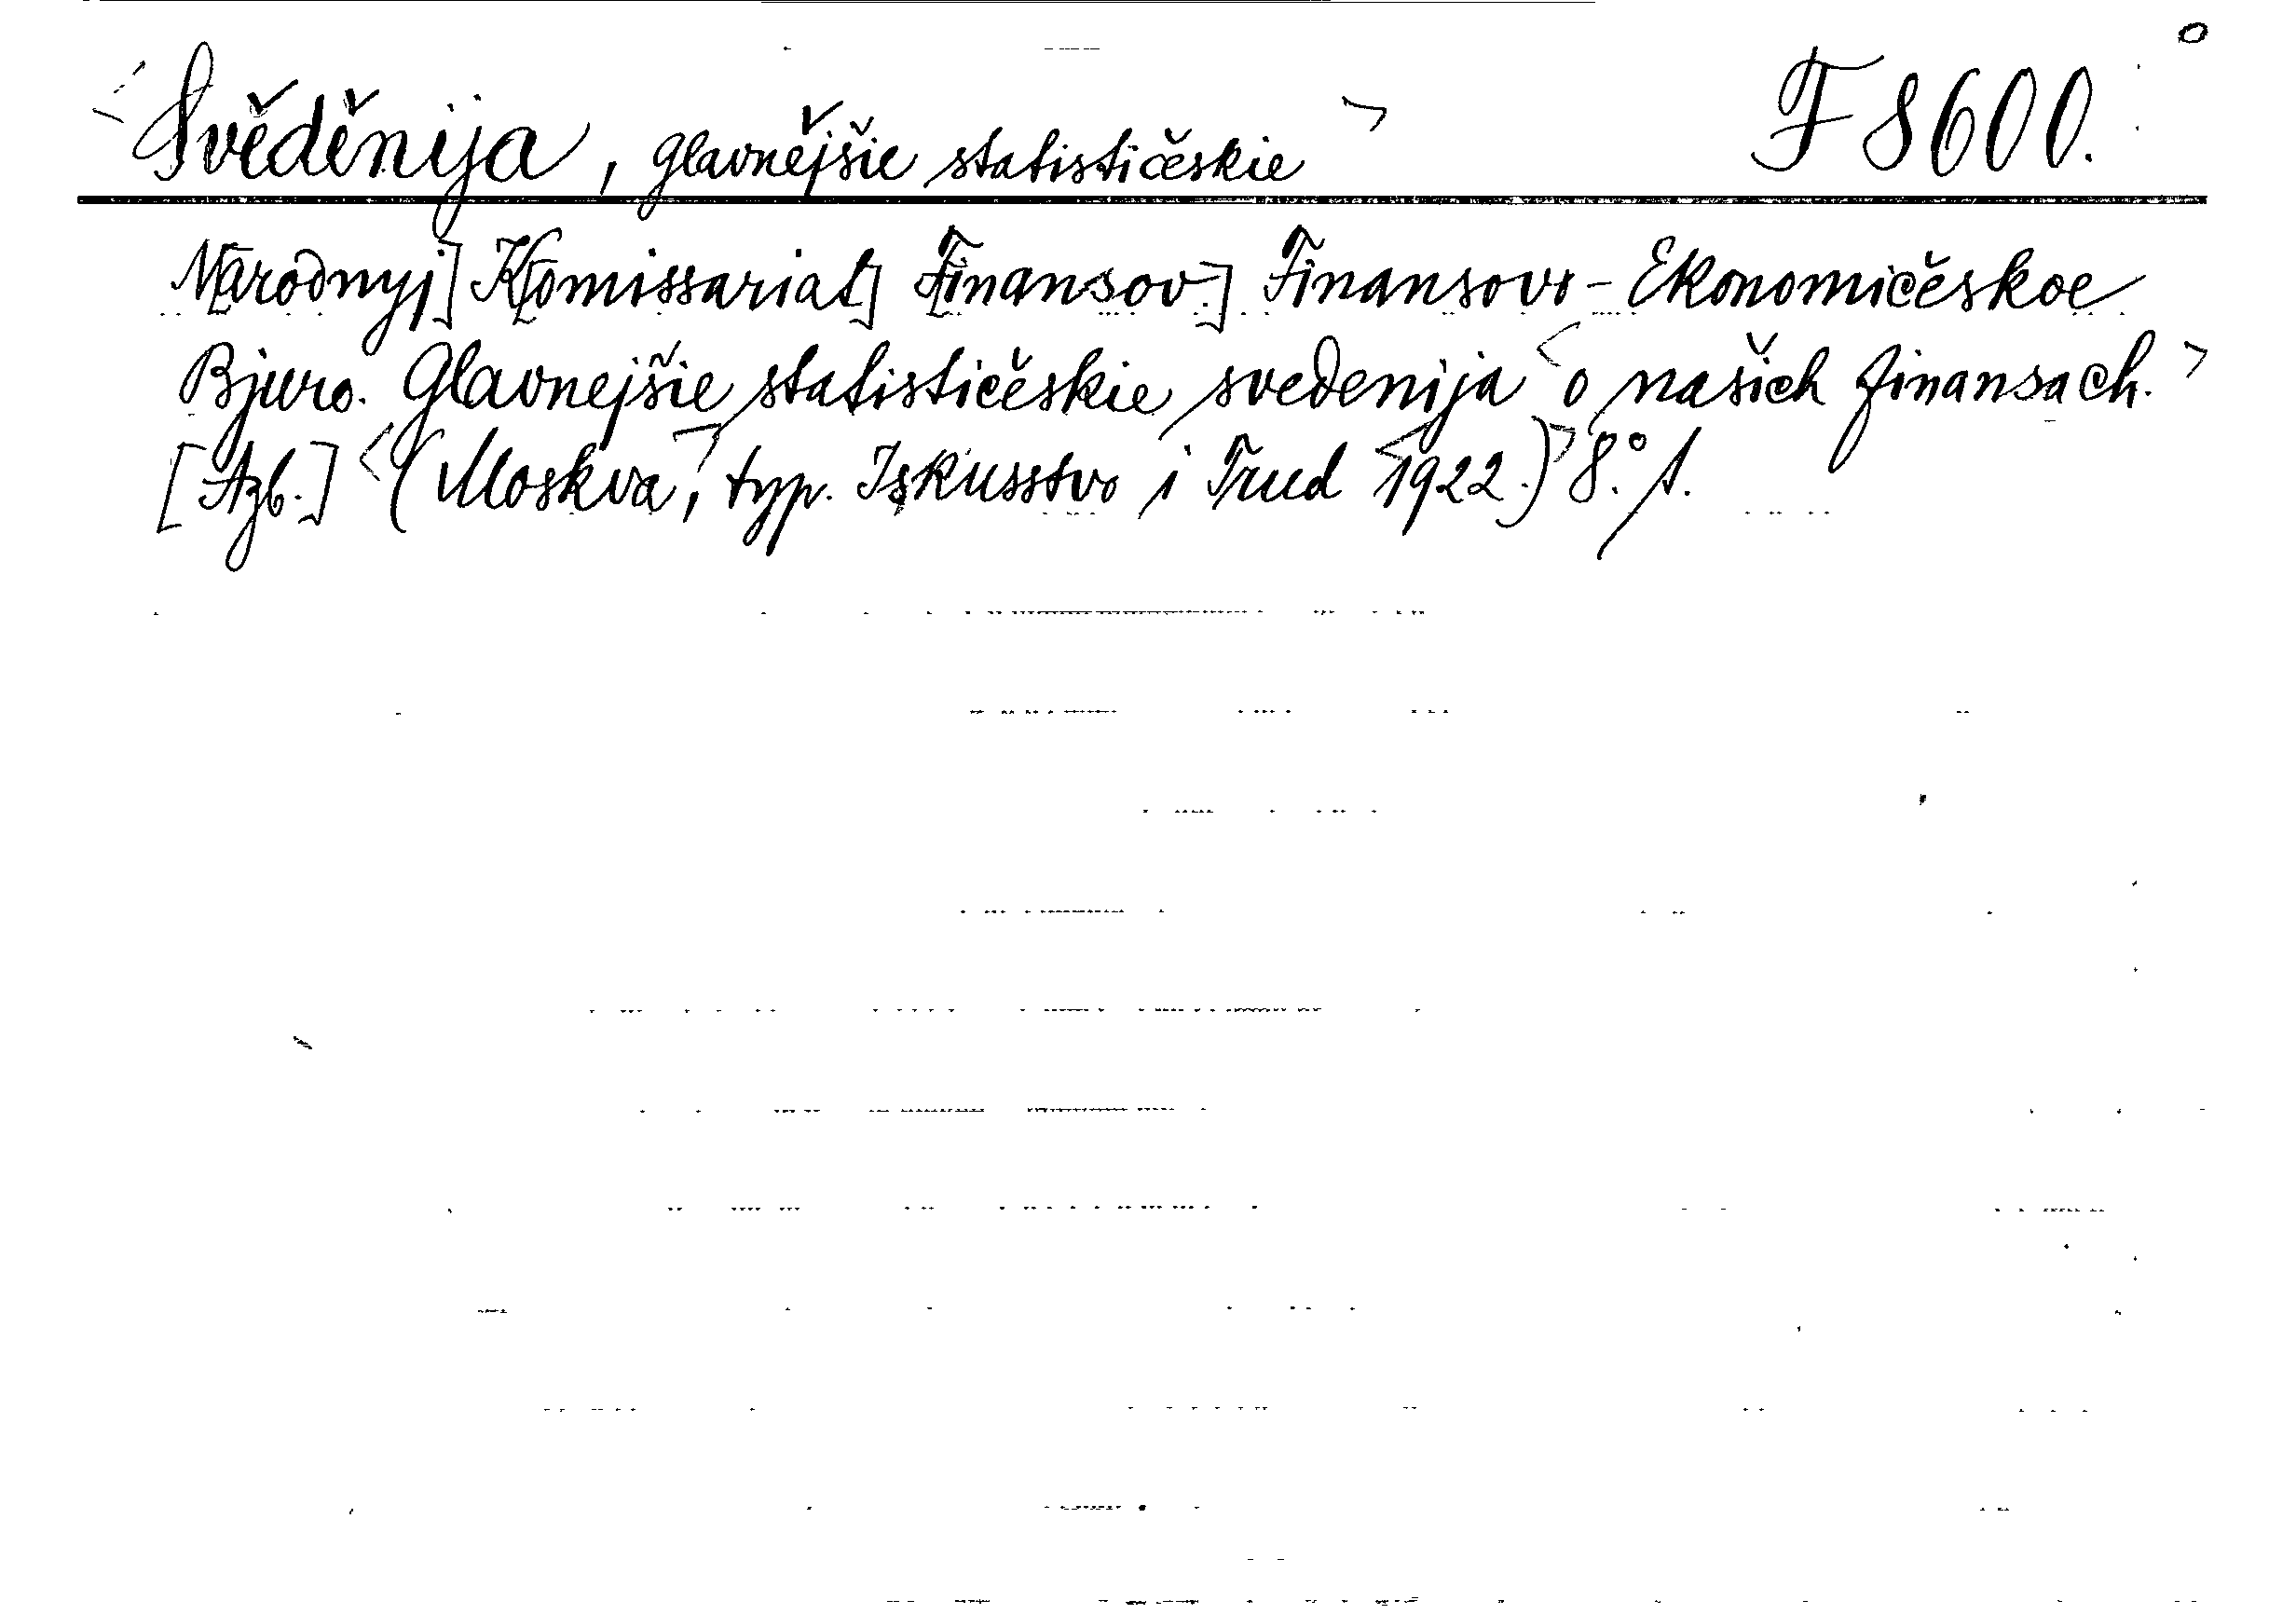 <Svěděnija, glavnějšie statističěskie> F 8600.
N[arodnyj] K[omissariat] F[inansov.] Finansovo-Ekonomičěskoe
Bjuro. Glavnejšie statističěskie svedenija <o našich finansach.>
[Azb.] <(Moskva>, typ. Iskusstvo i Trud <1922.)> 8.° 1.